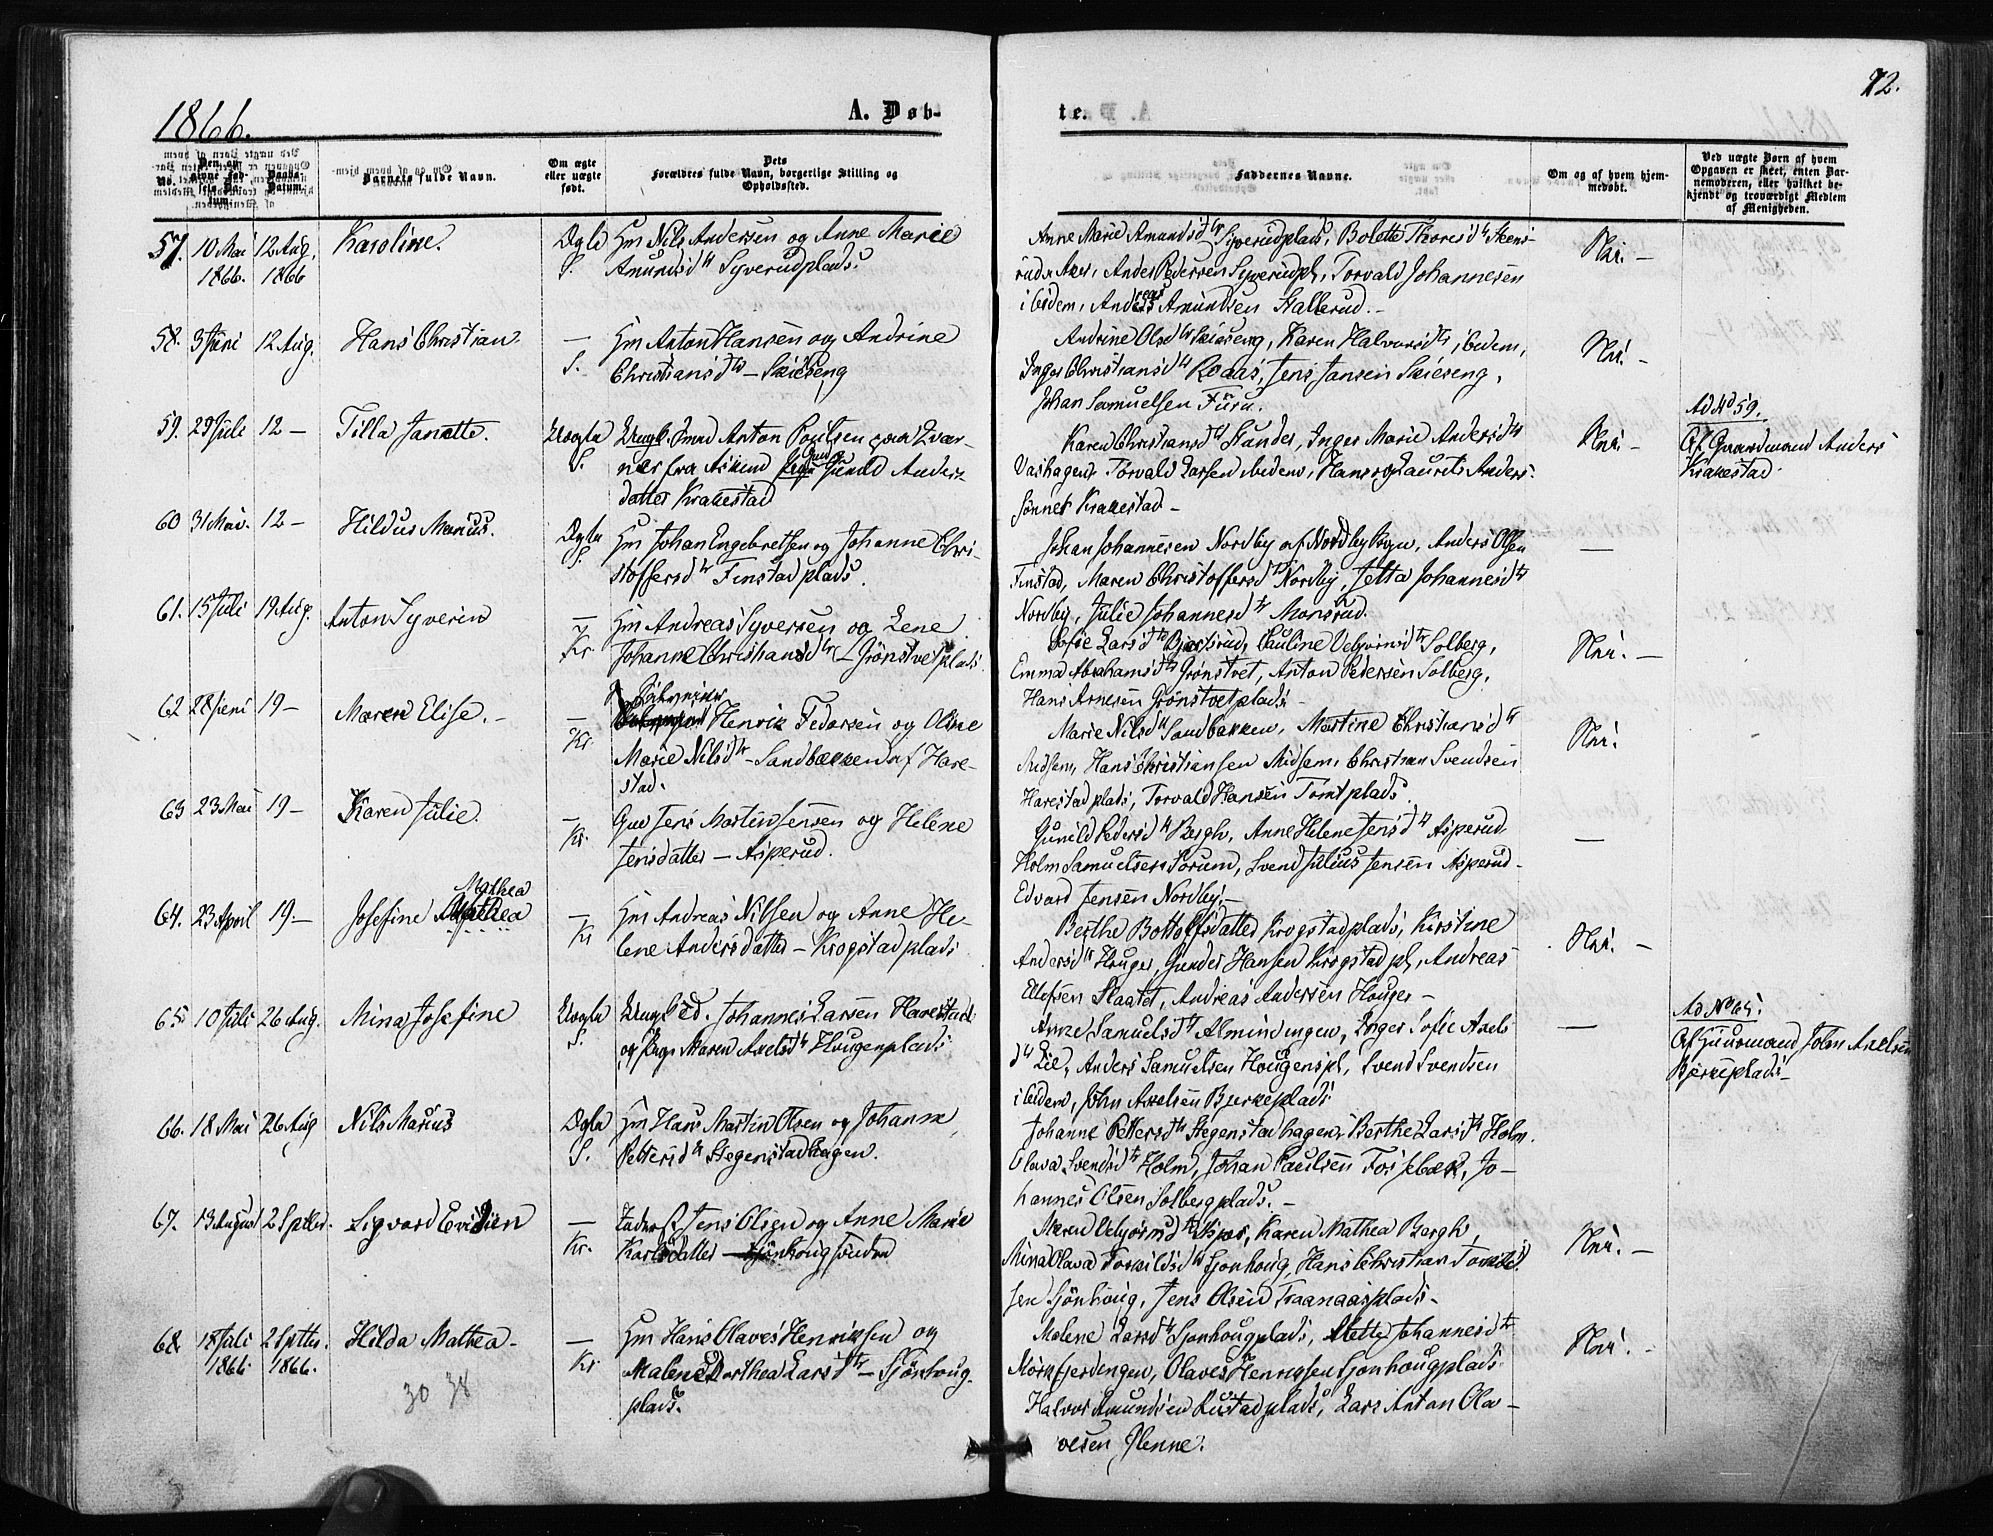 1866.
A. Døb-
te.
12.
No.
Den an-
givne Fød-
sels Da-
tum.
Daabs-
Datum.
Barnets fulde Navn.
Om ægte
eller uægte
født.
Dets
Forældres fulde Navn, borgerlige Stilling og
Opholdssted.
Faddernes Navne.
Om og af hvem hjem-
medøbt.
Ved uægte Børn af hvem
Opgaven er skeet, enten Bar-
nemoderen, eller hvilket be-
kjendt og troværdigt Medlem
af Menigheden.
57. 10 Mai 12 Aug.
1866. 1866
Karoline.
S.
Nils Andersen og Anne Marie
Amundsd tr Syverudplads.
Anne Marie Amundsd tr Syverudplads, Bolette Thoresd tr
Anders Pedersen Syverudpl, Torvald Johannesen
ibidem, Andreas Amundsen Stallerud.
58. 3 Juni 12 Aug.
Hans Christian
—
S.
Anton Hansen og Andrine
Christiansd tr — Skieseng
Andrine Olsd tr Skieseng, Karen Halvorsd tr ibidem,
Inger Christiansd tr Roaas, Jens Jansen Skieseng,
Johan Samuelsen Furu.
59. 29 Juli 12 —
Tilla Janette.
Uægte
S.
Ungk. Anton Poulsen
fra Askim Anders-
datter Krakestad
Karen Christiansd tr Inger Marie Andersd tr
Torvald Larsen ibidem, Hans og Laurits Anders-
sønner Krakestad —
Ad No 59.
Af Gaardmand Anders
Krakestad.
60 31 Mai. 12 —
Hildus Marius.
Ægte
S.
Johan Engebretsen og Johanne Chri-
stoffersd tr Finstadplads.
Johan Johannesen Nordby af Nordby Sogn, Anders Olsen
Finstad, Maren Christoffersd tr Nordby, Jetta Johannesd tr
Nordby, Julie Johannesd tr Monsrud.
—
61. 15 Juli 19 Aug.
Anton Syverin
—
Kr.
Andreas Syversen og Lene
Johanne Christiansd tr — Grønstvetplads.
Sofie Larsd tr Pauline Solberg,
Emma Abrahamsd tr Grønstvet, Anton Pedersen Solberg,
Hans Arnesen Grønstvetplads.
62 28 Juni 19 —
Maren Elise. —
—
Kr.
Henrik Pedersen og Oline
Marie Nilsd tr — Sandbakken af Hare-
stad.
Marie Nilsd tr Sandbakken, Martine Christiansd tr
Midsem, Hans Christiansen Midsem, Christian Svendsen
Harestadplads, Torvald Hansen Tomtplads.
63 23 Mai 19 —
Karen Julie.
—
Kr.
Jens Martin Jensen og Helene
Jensdatter — Asperud.
Gunild Pedersd tr Bergh, Anne Helene Jensd tr Asperud
Holm Samuelsen Sorum, Svend Julius Jensen Asperud
Edvard Jensen Nordby. —
—
64. 23 April 19 —
Mathea
Josefine Mathea
—
Kr
Andreas Nilsen og Anne He-
lene Andersdatter — Krogstadplads
Berthe Bottolfsdatter Krogstadplads, Kirstine
Andersd tr Houger, Gunder Hansen Krogstad pl, Andreas
Ellefsen Slaatet, Andreas Andersen Houger —
65 10 Juli 26 Aug.
Mina Josefine
Uægte
S.
Johannes Larsen Harestad
og Pige Maren Axelsd tr Hougenplads
Anne Samuelsd tr Almindingen, Inger Sofie Axels-
d tr Lie, Anders Samuelsen Hougenspl, Svend Svendsen
ibidem, John Axelsen Bjerkeplads
—
Ad No 65.
Af Huusmand John Axelsen
Bjerkeplads —
66. 18 Mai 26 Aug
Nils Marius
Ægte
S.
Hans Martin Olsen og Johanne
Pettersd tr Stegenstadhagen.
Johanne Pettersd tr Stegenstadhagen, Berthe Larsd tr Holm.
Olava Svendsd tr Holm, Johan Paulsen Fossebæk, Jo-
hannes Olsen Solbergplads. —
67. 13 August 2 Septbr.
Sigvard
—
Kr.
Jens Olsen og Anne Marie
Karlsdatter — Sjønhoug søndre
Maren Karen Mathea Bergh,
Mina Olava Torkildsd tr Sjonhoug, Hans Christian Torkild-
sen Sjønhoug, Jens Olsen Fraanaasplads —
68. 18 Juli 2 Septbr.
1866 1866.
Hilda Mathea —
—
Kr.
Hans Olaves Henriksen og
Malene Dorthea Larsd tr — Sjønhoug-
plads.
Malene Larsd tr Sjonhougplads, Mette Johannesd tr
Mørkfjerdengen, Olaves Henriksen Sjonhougplads.
Halvor Amundsen Rustadplads, Lars Anton Ola-
vesen Glenne.
30 38